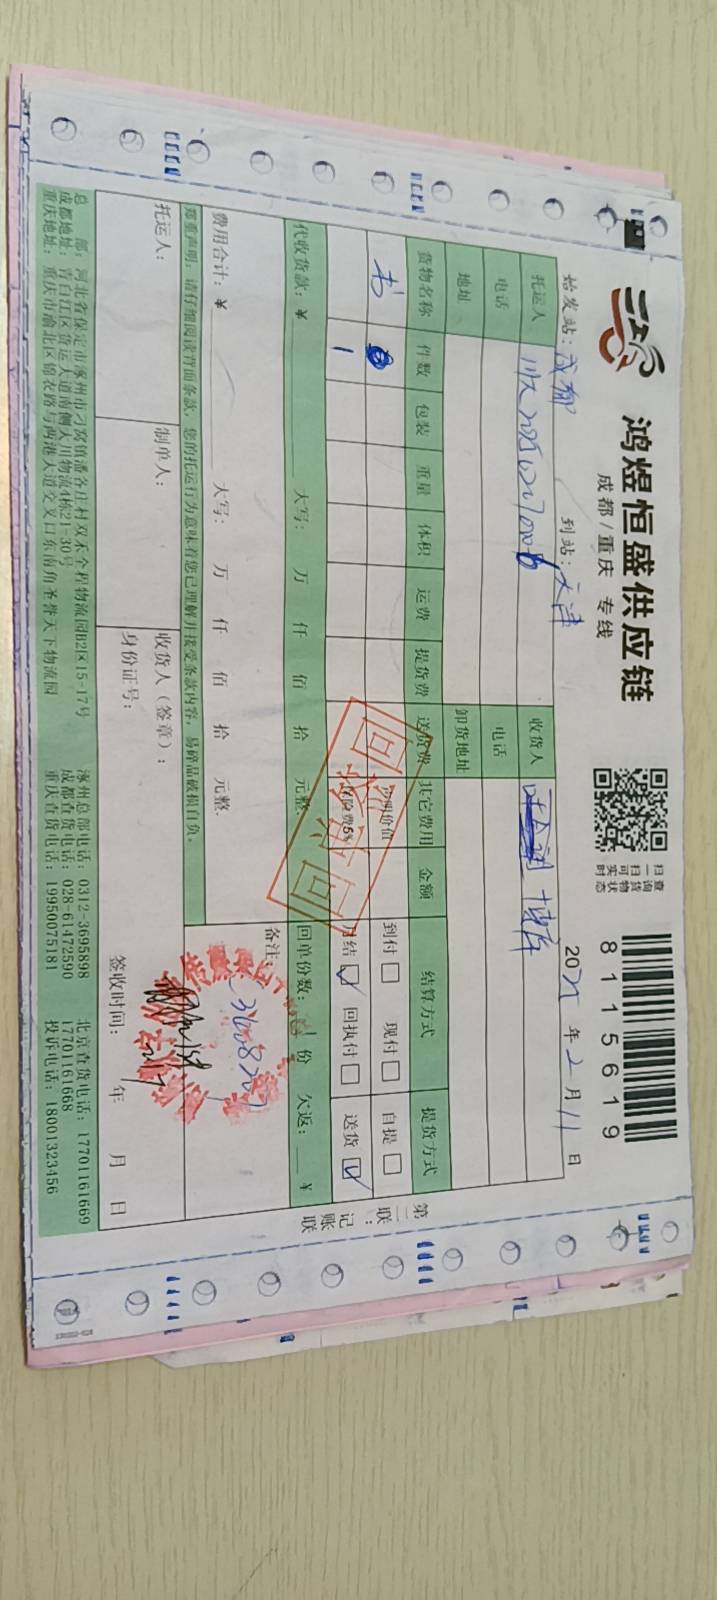 鸿煜恒盛供应链
成都/重庆 专线
扫一扫可实时
查询货物状态
8115619
始发站：成都
到站：天津
2025年2月11日
托运人
收货人
电话
电话
地址
卸货地址
货物名称 件数 包装 重量 体积 运费 提货费 送货费 其它费用 金额 结算方式 提货方式
书
声明价值
到付 现付 自提
1
保险费5‰
月结 ✓ 回执付 送货 ✓
代收货款：¥ 大写： 万 仟 佰 拾 元整
回单份数： 份 欠返： ¥
费用合计：¥ 大写： 万 仟 佰 拾 元整
备注：
郑重声明：请仔细阅读背面条款，您的托运行为意味着您已理解并接受条款内容，易碎品破损自负。
托运人：
制单人：
收货人（签章）：
身份证号：
签收时间： 年 月 日
总 部：河北省保定市涿州市刁窝镇潘各庄村双禾全程物流园B2区15-17号
成都地址：青白江区货运大道南侧天川物流4栋21-30号
重庆地址：重庆市渝北区锦衣路与两港大道交叉口东南角圣誉天下物流园
涿州总部电话：0312-3695898
成都查货电话：028-61472590
重庆查货电话：19950075181
北京查货电话：17701161669
17701161668
投诉电话：18001323456
第二联：记账联
回单签回